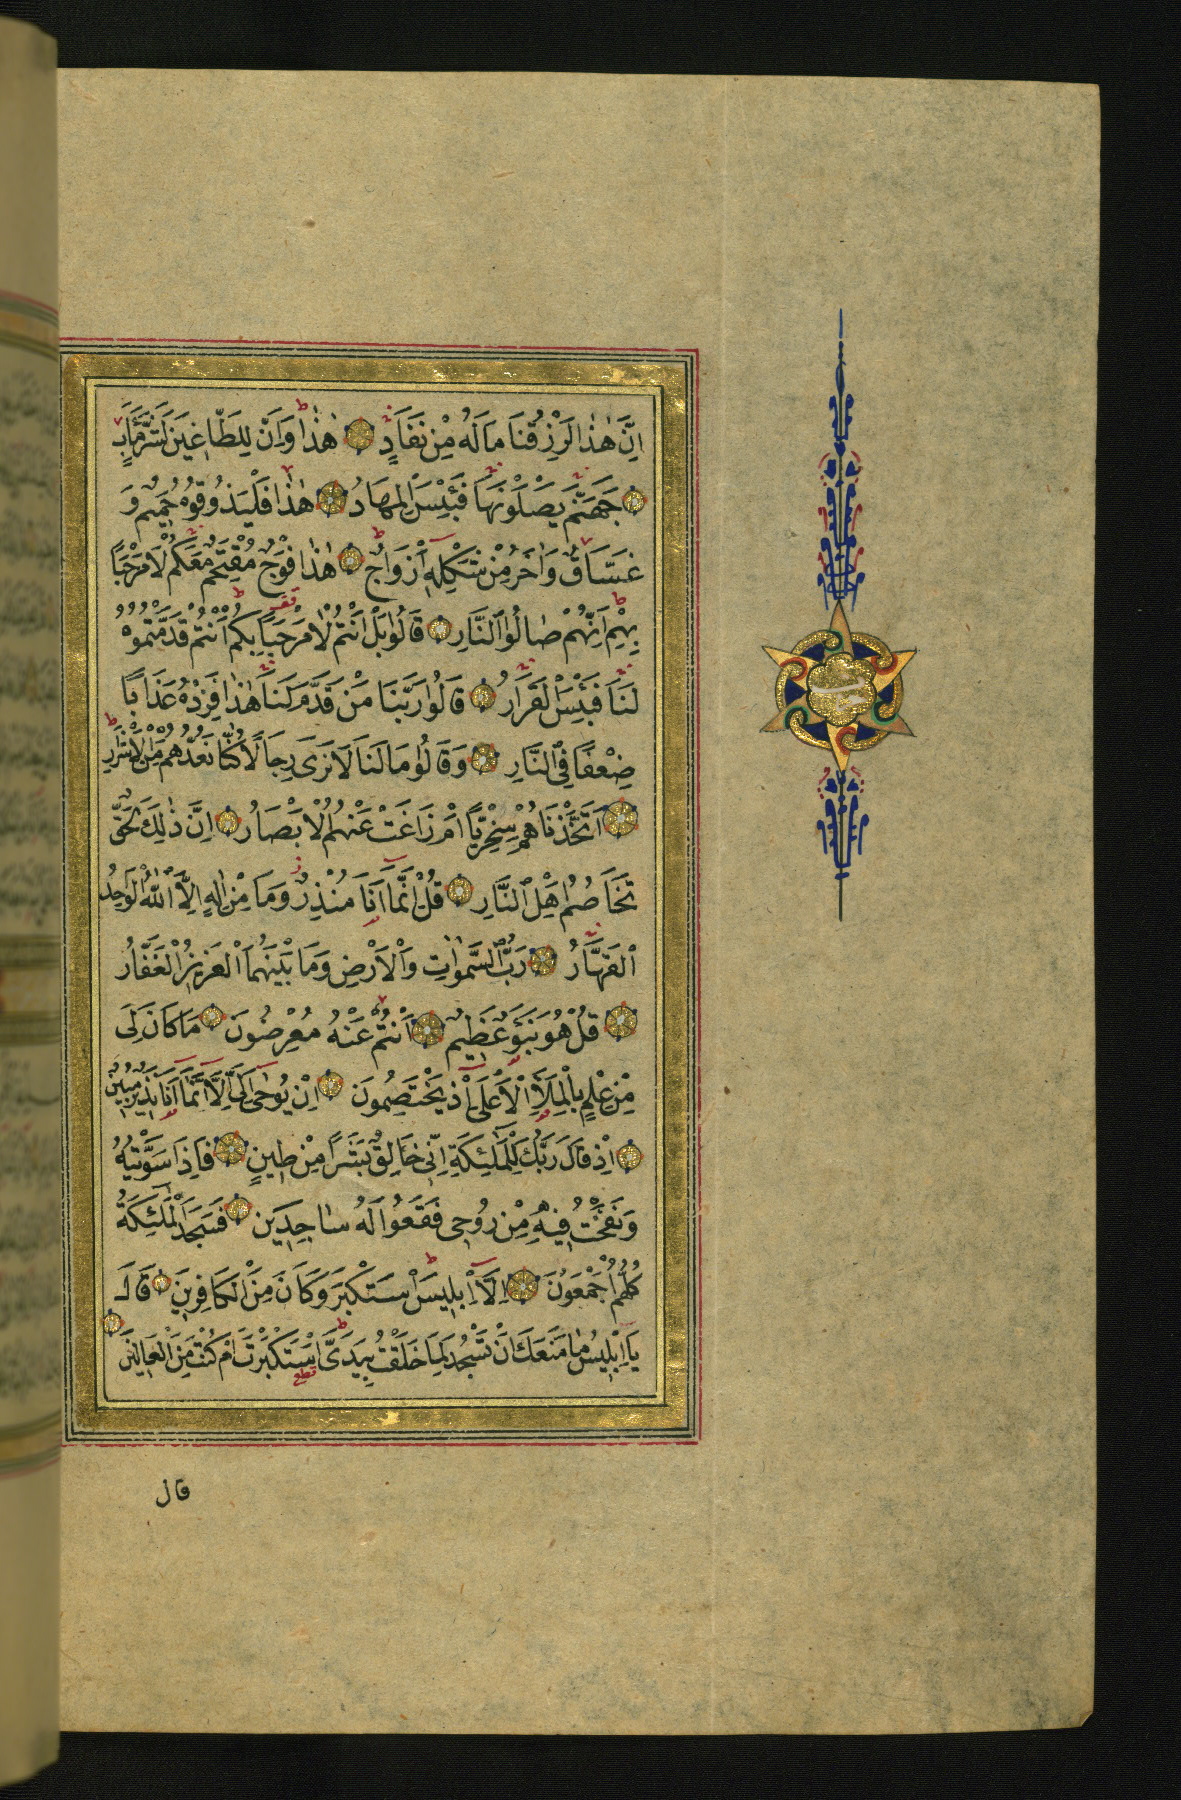 اِنَّ هٰذَا لَرِزْقُنَا مَا لَهُ مِنْ نَفَادٍ هٰذَا وَاِنَّ لِلطَّاغِينَ لَشَرَّ مَآبٍ
جَهَنَّمَ يَصْلَوْنَهَا فَبِئْسَ الْمِهَادُ هٰذَا فَلْيَذُوقُوهُ حَمِيمٌ وَ
غَسَّاقٌ وَاٰخَرُ مِنْ شَكْلِهِ اَزْوَاجٌ هٰذَا فَوْجٌ مُقْتَحِمٌ مَعَكُمْ لَا مَرْحَبًا
بِهِمْ اِنَّهُمْ صَالُوا النَّارِ قَالُوا بَلْ اَنْتُمْ لَا مَرْحَبًا بِكُمْ اَنْتُمْ قَدَّمْتُمُوهُ
لَنَا فَبِئْسَ الْقَرَارُ قَالُوا رَبَّنَا مَنْ قَدَّمَ لَنَا هٰذَا فَزِدْهُ عَذَابًا
ضِعْفًا فِي النَّارِ وَقَالُوا مَا لَنَا لَا نَرَى رِجَالًا كُنَّا نَعُدُّهُمْ مِنَ الْاَشْرَارِ
اَتَّخَذْنَاهُمْ سِخْرِيًّا اَمْ زَاغَتْ عَنْهُمُ الْاَبْصَارُ اِنَّ ذٰلِكَ لَحَقٌّ
تَخَاصُمُ اَهْلِ النَّارِ قُلْ اِنَّمَا اَنَا مُنْذِرٌ وَمَا مِنْ اِلٰهٍ اِلَّا اللّٰهُ الْوَاحِدُ
الْقَهَّارُ رَبُّ السَّمٰوَاتِ وَالْاَرْضِ وَمَا بَيْنَهُمَا الْعَزِيزُ الْغَفَّارُ
قُلْ هُوَ نَبَؤٌ عَظِيمٌ اَنْتُمْ عَنْهُ مُعْرِضُونَ مَا كَانَ لِيَ
مِنْ عِلْمٍ بِالْمَلَاِ الْاَعْلَى اِذْ يَخْتَصِمُونَ اِنْ يُوحَى اِلَيَّ اِلَّا اَنَّمَا اَنَا نَذِيرٌ مُبِينٌ
اِذْ قَالَ رَبُّكَ لِلْمَلٰئِكَةِ اِنِّي خَالِقٌ بَشَرًا مِنْ طِينٍ فَاِذَا سَوَّيْتُهُ
وَنَفَخْتُ فِيهِ مِنْ رُوحِي فَقَعُوا لَهُ سَاجِدِينَ فَسَجَدَ الْمَلٰئِكَةُ
كُلُّهُمْ اَجْمَعُونَ اِلَّا اِبْلِيسَ اسْتَكْبَرَ وَكَانَ مِنَ الْكَافِرِينَ قَالَ
يَا اِبْلِيسُ مَا مَنَعَكَ اَنْ تَسْجُدَ لِمَا خَلَقْتُ بِيَدَيَّ اَسْتَكْبَرْتَ اَمْ كُنْتَ مِنَ الْعَالِينَ
قال